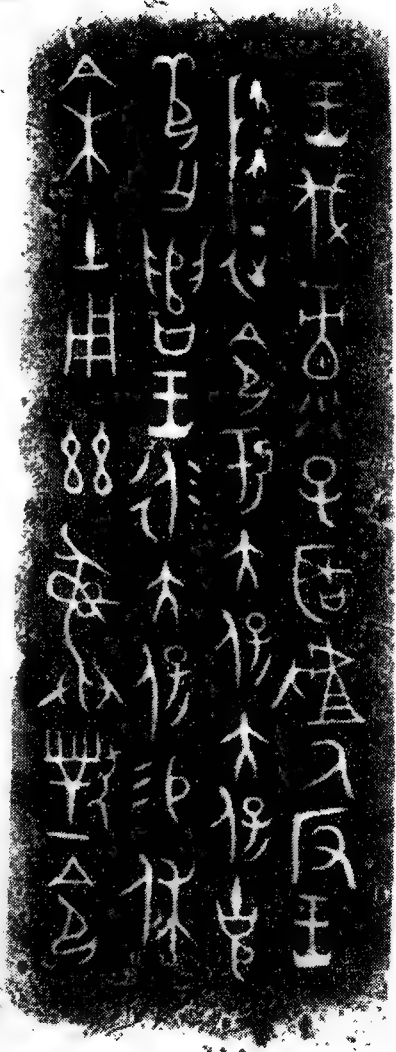 王伐彔子聖𠭯氒反王
降征令于大保大保克
敬亡遣王永大保易休
余土用茲彝對令